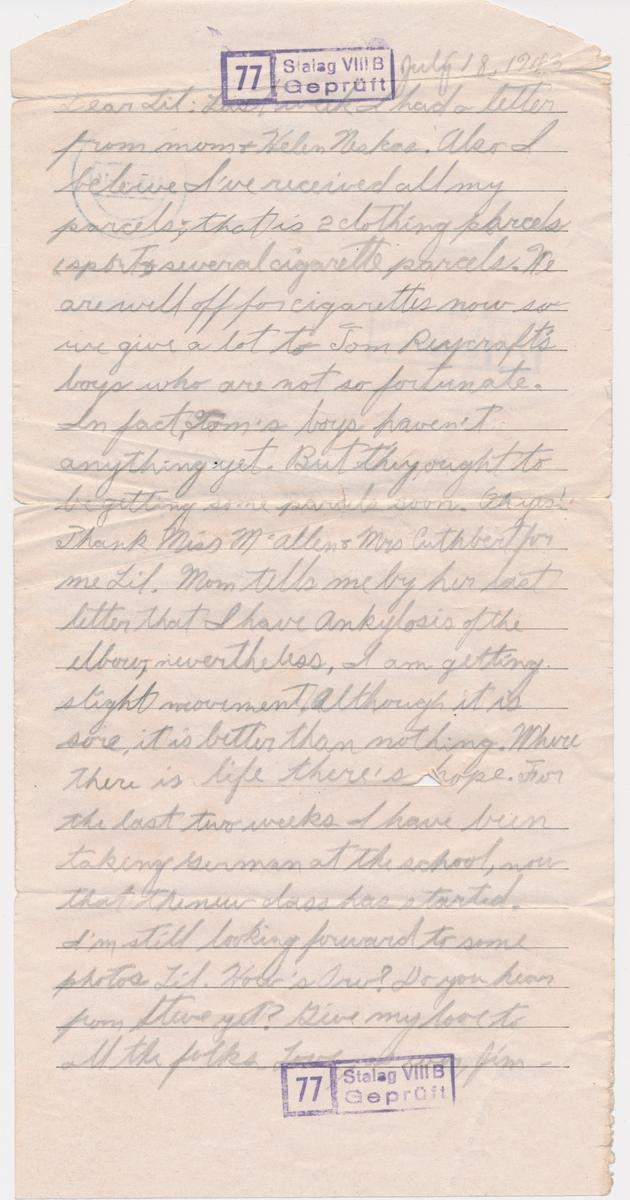 77 Stalag VIII B Geprüft
July 18, 1943
Dear Lil: Last week I had a letter
from mom & Helen. Also I
beleive I've received all my
parcels; that is 2 clothing parcels
& several cigarette parcels. We
are well off for cigarettes now so
we give a lot to Tom Reycraft's
boys who are not so fortunate.
In fact, Tom's boys haven't
anything yet. But they ought to
be getting some parcels soon.
Thank Miss McAllen & Mrs Cuthbert for
me Lil. Mom tells me by her last
letter that I have Ankylosis of the
elbow, nevertheless, I am getting
slight movement. Although it is
sore, it is better than nothing. Where
there is life there's hope. For
the last two weeks I have been
taking German at the school, now
that the new class has started.
I'm still looking forward to some
photos Lil. How's Orv? Do you hear
from Steve yet? Give my love to
all the folks Love Jim
77 Stalag VIII B Geprüft